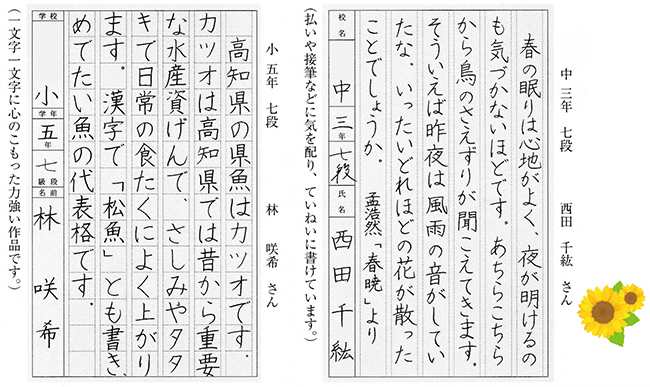 中三年　七段　　西田　千紘　さん
春の眠りは心地がよく、夜が明けるの
も気づかないほどです。あちらこちら
から鳥のさえずりが聞こえてきます。
そういえば昨夜は風雨の音がしてい
たな、いったいどれほどの花が散った
ことでしょうか。
孟浩然「春暁」より
校名　中　三年　七段　氏名　西田千紘
（払いや接筆などに気を配り、ていねいに書けています。）
小五年　七段　　林　咲希　さん
高知県の県魚はカツオです。
カツオは高知県では昔から重要
な水産資げんで、さしみやタタ
キで日常の食たくによく上がり
ます。漢字で「松魚」とも書き、
めでたい魚の代表格です。
学校　小　学年　五年　七　級段　名前　林　咲希
（一文字一文字に心のこもった力強い作品です。）